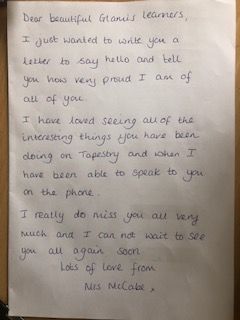 Dear beautiful Glamis learners,
I just wanted to write you a
letter to say hello and tell
you how very proud I am of
all of you.
I have loved seeing all of the
interesting things you have been
doing on Tapestry and when I
have been able to speak to you
on the phone.
I really do miss you all very
much and I can not wait to see
you all again soon
Lots of love from
Mrs McCabe x